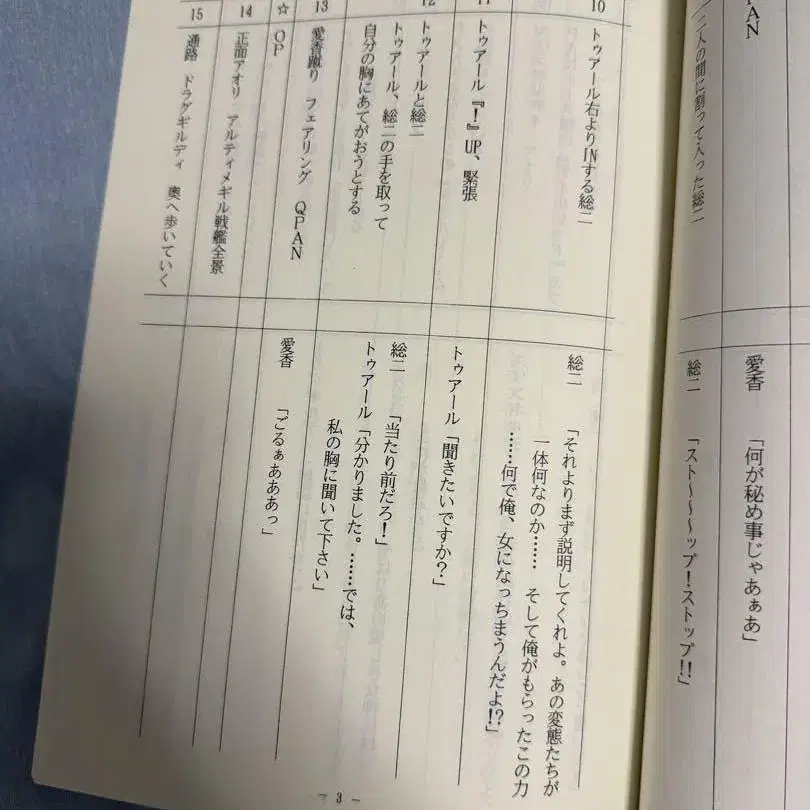 QPAN
二人の間に割って入った総二
愛香　「何が秘め事じゃあぁあ」
総二　「スト～～～ップ！ストップ!!」
10
トゥアール右よりINする総二
総二　「それよりまず説明してくれよ。あの変態たちが
一体何なのか……　そして俺がもらったこの力
……何で俺、女になっちまうんだよ!?」
11
トゥアール『！』UP、緊張
トゥアール「聞きたいですか？」
12
トゥアールと総二
トゥアール、総二の手を取って
自分の胸にあてがおうとする
総二　「当たり前だろ！」
トゥアール「分かりました。……では、
私の胸に聞いて下さい」
13
愛香蹴り　フェアリング　QPAN
愛香　「ごるぁあああっ」
☆
OP
14
正面アオリ　アルティメギル戦艦全景
15
通路　ドラグギルディ　奥へ歩いていく
－3－